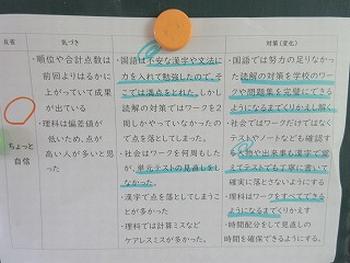 反省
気づき
対策(変化)
ちょっと
自信
・順位や合計点数は
前回よりはるかに
上がっていて成果
が出ている
・理科は偏差値が
低いため、点が
高い人が多いと思
った
・国語は不安な漢字や文法に
力を入れて勉強したので、そ
こでは満点をとれた。しかし
読解の対策ではワークを2
周しかやっていなかったの
で点を落としてしまった。
・社会はワークを何周もした
が、単元テストの見直しをし
なかった。
・漢字で点を落としてしまうこ
とが多かった
・理科では計算ミスなど
ケアレスミスが多かった。
・国語では努力の足りなかっ
た読解の対策を学校のワー
クや問題集を完璧にできる
ようになるまでくりかえし解く
・社会ではワークだけではなく
テストやノートなども確認す
る人物や出来事も漢字で覚
えてテストでも丁寧に書いて
確実に落とさないようにする
・理科はワークをすべてできる
ようになるまでくりかえす
・時間配分をして見直しの
時間を確保できるようにする。